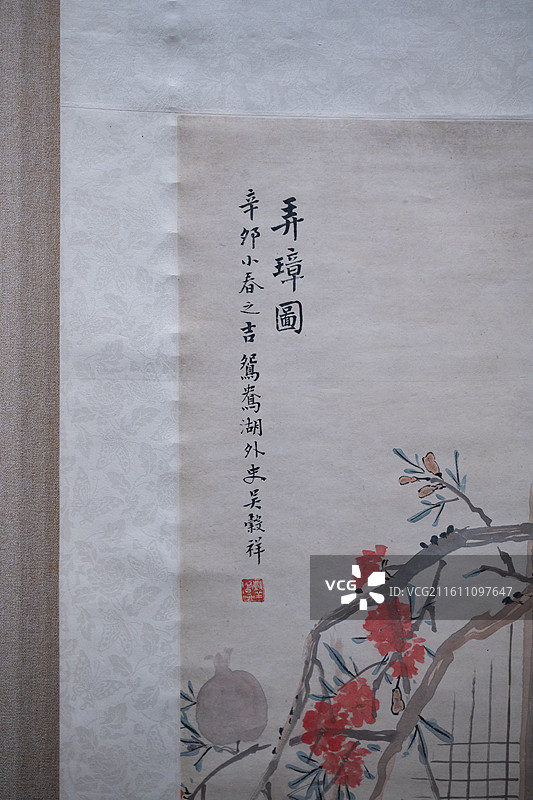 弄璋圖
辛夘小春之吉鴛鴦湖外史吴穀祥
VCG
ID: VCG211611097647